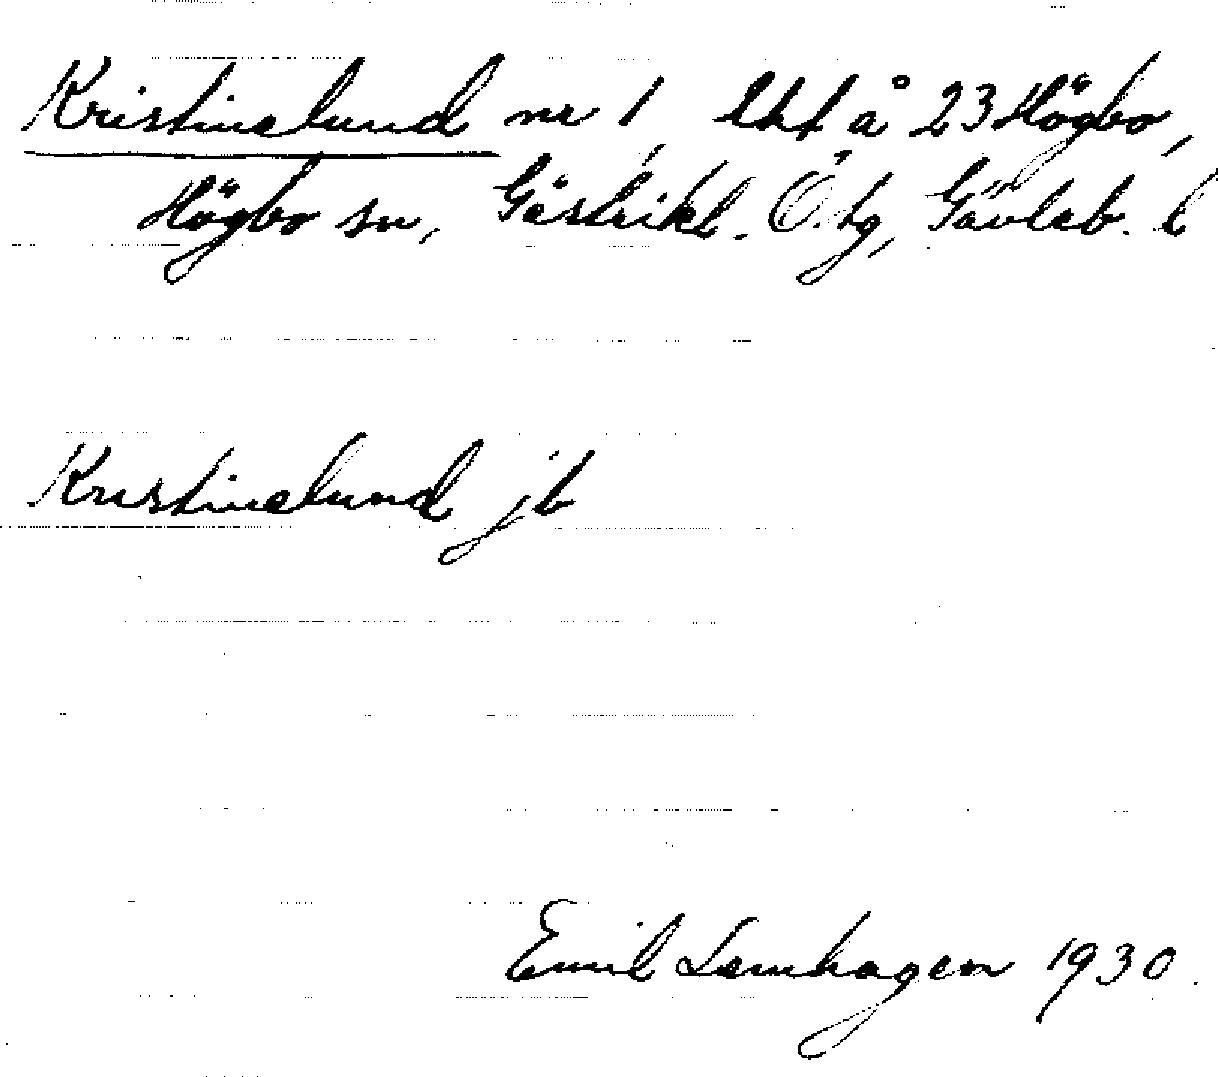 Kristinelund nr 1, lht å 23 Högbo,
Högbo sn, Gästrikl. Ö. tg, Gävleb. l
Kristinelund jb
Emil Lemhagen 1930.